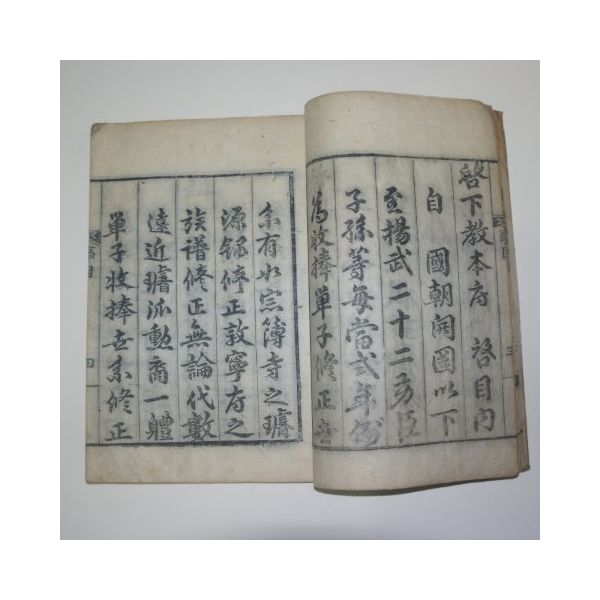 啓下教本府 啓目內
自 國朝開國以下
至揚武二十二功臣
子孫等每當式年例
爲收捧單子修正世
系有如宗簿寺之璿
源錄修正敦寧府之
族譜修正無論代數
遠近璿派勳裔一體
單子收捧世系修正
四